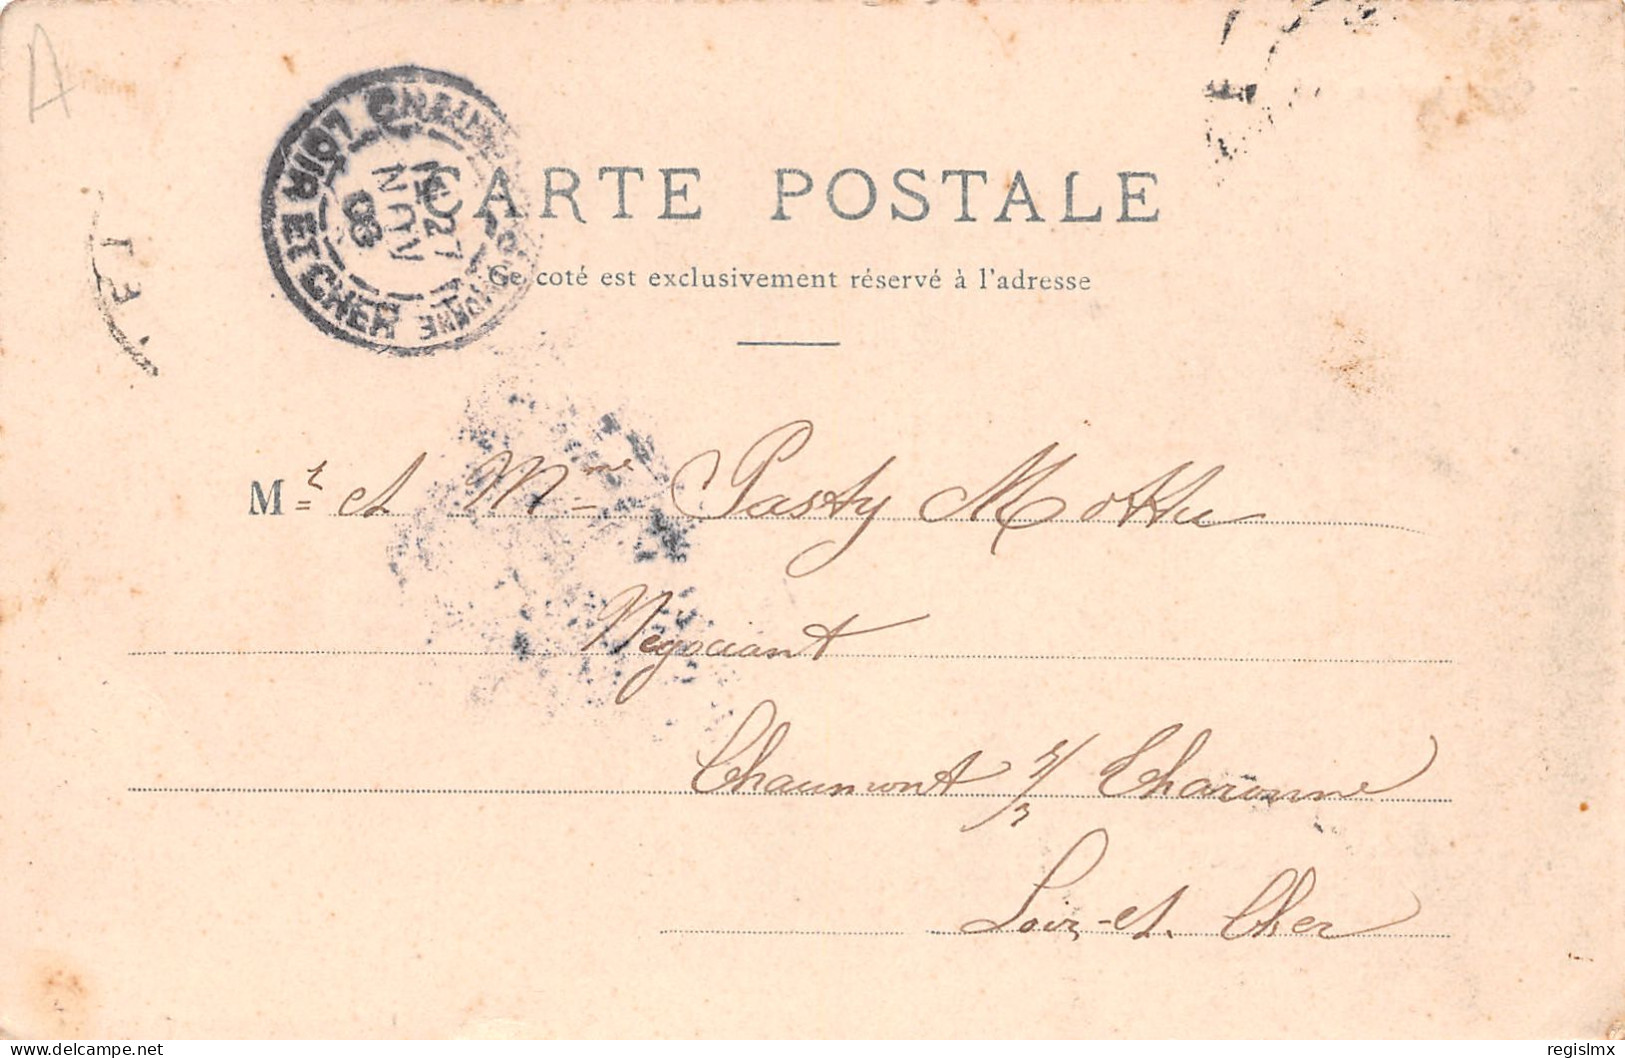 A
CHAUMONT-SUR-THARONNE
LOIR ET CHER
27
NOV
03
CARTE POSTALE
Ce coté est exclusivement réservé à l'adresse
Mr et Mme Pasty Mottu
Négociant
Chaumont s/ Tharonne
Loir-et-Cher
regislmx